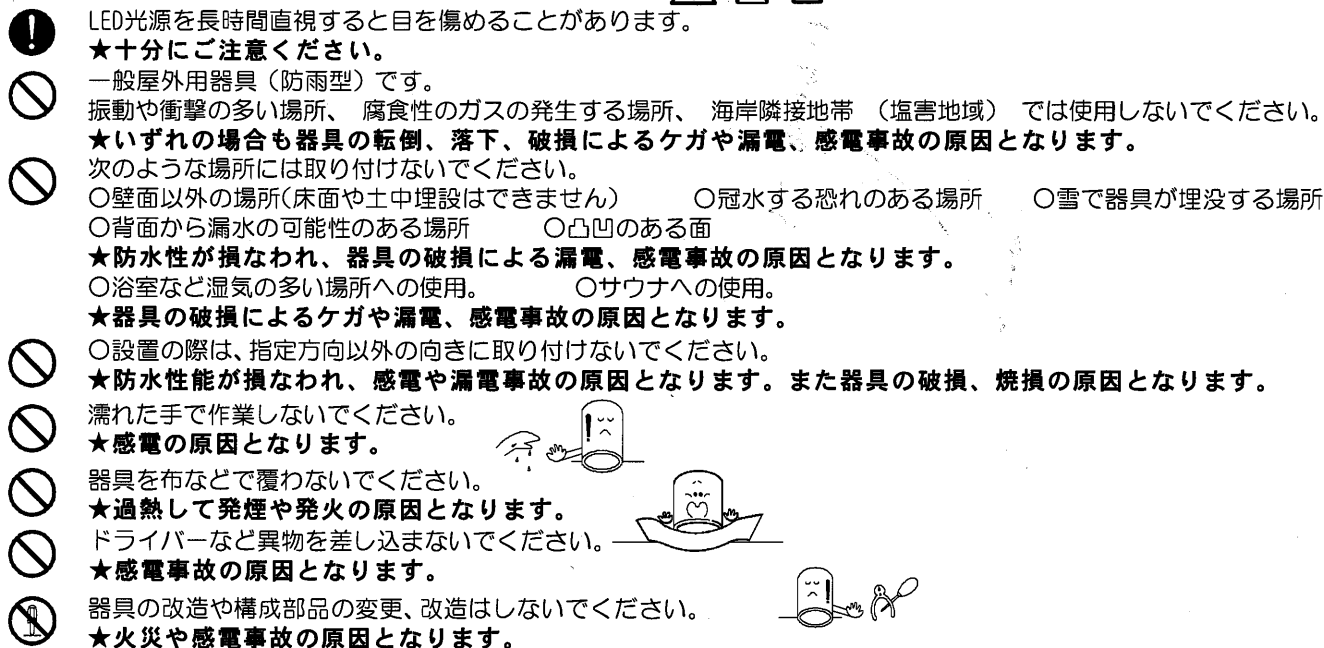 LED光源を長時間直視すると目を傷めることがあります。
★十分にご注意ください。
一般屋外用器具（防雨型）です。
振動や衝撃の多い場所、 腐食性のガスの発生する場所、 海岸隣接地帯 （塩害地域） では使用しないでください。
★いずれの場合も器具の転倒、落下、破損によるケガや漏電、感電事故の原因となります。
次のような場所には取り付けないでください。
○壁面以外の場所(床面や土中埋設はできません） ○冠水する恐れのある場所 ○雪で器具が埋没する場所
○背面から漏水の可能性のある場所 ○凸凹のある面
★防水性が損なわれ、器具の破損による漏電、感電事故の原因となります。
○浴室など湿気の多い場所への使用。 ○サウナへの使用。
★器具の破損によるケガや漏電、感電事故の原因となります。
○設置の際は、指定方向以外の向きに取り付けないでください。
★防水性能が損なわれ、感電や漏電事故の原因となります。また器具の破損、焼損の原因となります。
濡れた手で作業しないでください。
★感電の原因となります。
器具を布などで覆わないでください。
★過熱して発煙や発火の原因となります。
ドライバーなど異物を差し込まないでください。
★感電事故の原因となります。
器具の改造や構成部品の変更、改造はしないでください。
★火災や感電事故の原因となります。